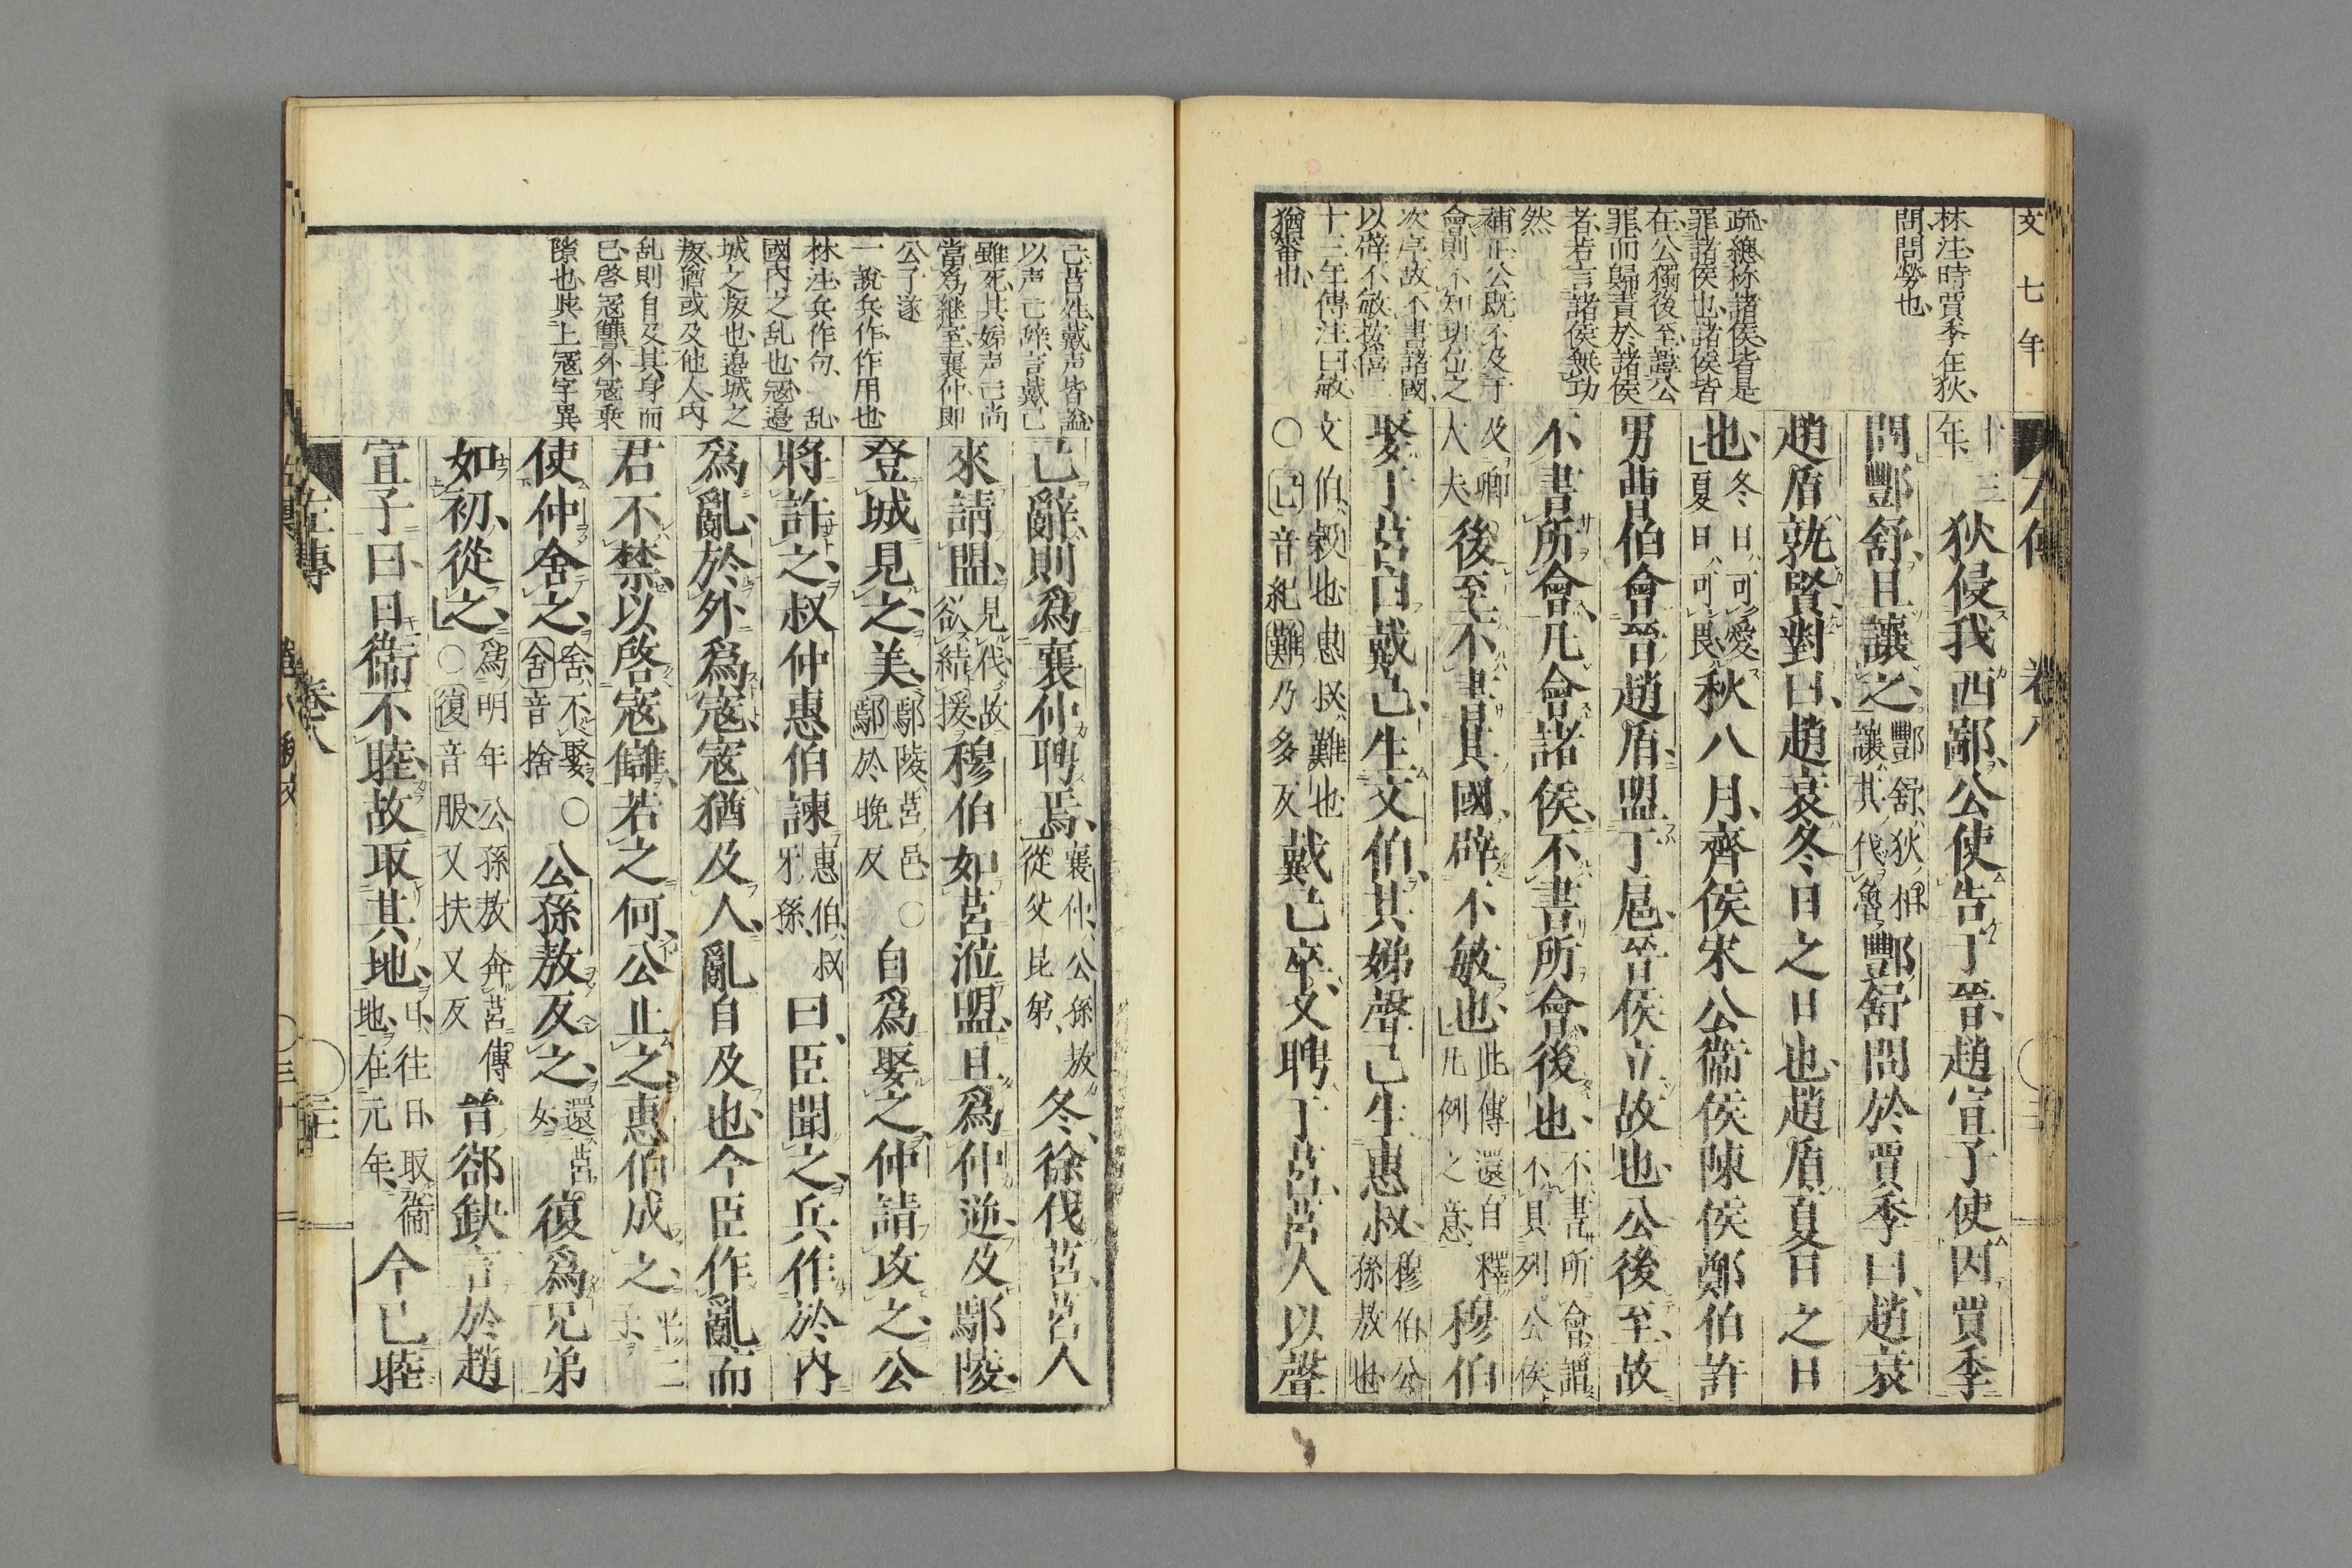 文七年
林注時賈季在狄、
問問勞也、
疏總称諸侯皆是
罪諸侯也諸侯皆
在公獨後至諱公
罪而歸責於諸侯
者若言諸侯無功
然
補正公既不及於
會則不知班位之
次序故不書諸國
以辟不敏按僖二
十三年傳注曰敏
猶審也、
左傳 卷八
十三年 狄侵我西鄙、公使告于晉、趙宣子使因賈季
問酆舒、且讓之、酆舒、狄相、讓其伐魯、酆舒問於賈季曰、趙衰
趙盾孰賢、對曰、趙衰冬日之日也、趙盾夏日之日
也、冬日、可愛、夏日、可畏、秋八月、齊侯宋公衞侯陳侯鄭伯許
男曹伯會晉趙盾盟于扈、晉侯立故也、公後至、故
不書所會、凡會諸侯、不書所會、後也、不書所會、謂不具列公侯
及卿大夫 後至、不書其國、辟不敏也、此傳還自釋凡例之意、穆伯
娶于莒、曰戴己、生文伯、其娣聲己生惠叔、穆伯、公孫敖也
文伯、穀也、惠叔、難也、○己音紀難乃多反 戴己卒、又聘于莒、莒人以聲
己莒姓戴声皆謚
以声己辞言戴己
雖死其娣声己尚
當為継室襄仲即
公子遂
一說兵作作用也
林注兵作句、乱
國内之乱也寇邉
城之叛也邉城之
叛猶或及他人内
乱則自及其身而
已啓寇讐外寇乗
隙也與上寇字異
己辭、則爲襄仲聘焉、襄仲、公孫敖從父昆弟、冬、徐伐莒、莒人
來請盟、見伐、故欲結援、穆伯如莒涖盟、且爲仲逆、及鄢陵、
登城見之、美、鄢陵、莒邑、○鄢於晚反 自爲娶之、仲請攻之、公
將許之、叔仲惠伯諫、惠伯、叔牙孫、曰、臣聞之、兵作於内
爲亂、於外爲寇、寇猶及人、亂自及也、今臣作亂而
君不禁、以啓寇讎、若之何、公止之、惠伯成之、平二子、
使仲舍之、舍、不娶、○舍音捨 公孫敖反之、還莒女、復爲兄弟
如初、從之、爲明年公孫敖奔莒傳○復音服又扶又反 晉郤缺言於趙
宣子曰、日衞不睦、故取其地、日、往日、取衞地、在元年、今已睦
左傳 卷八